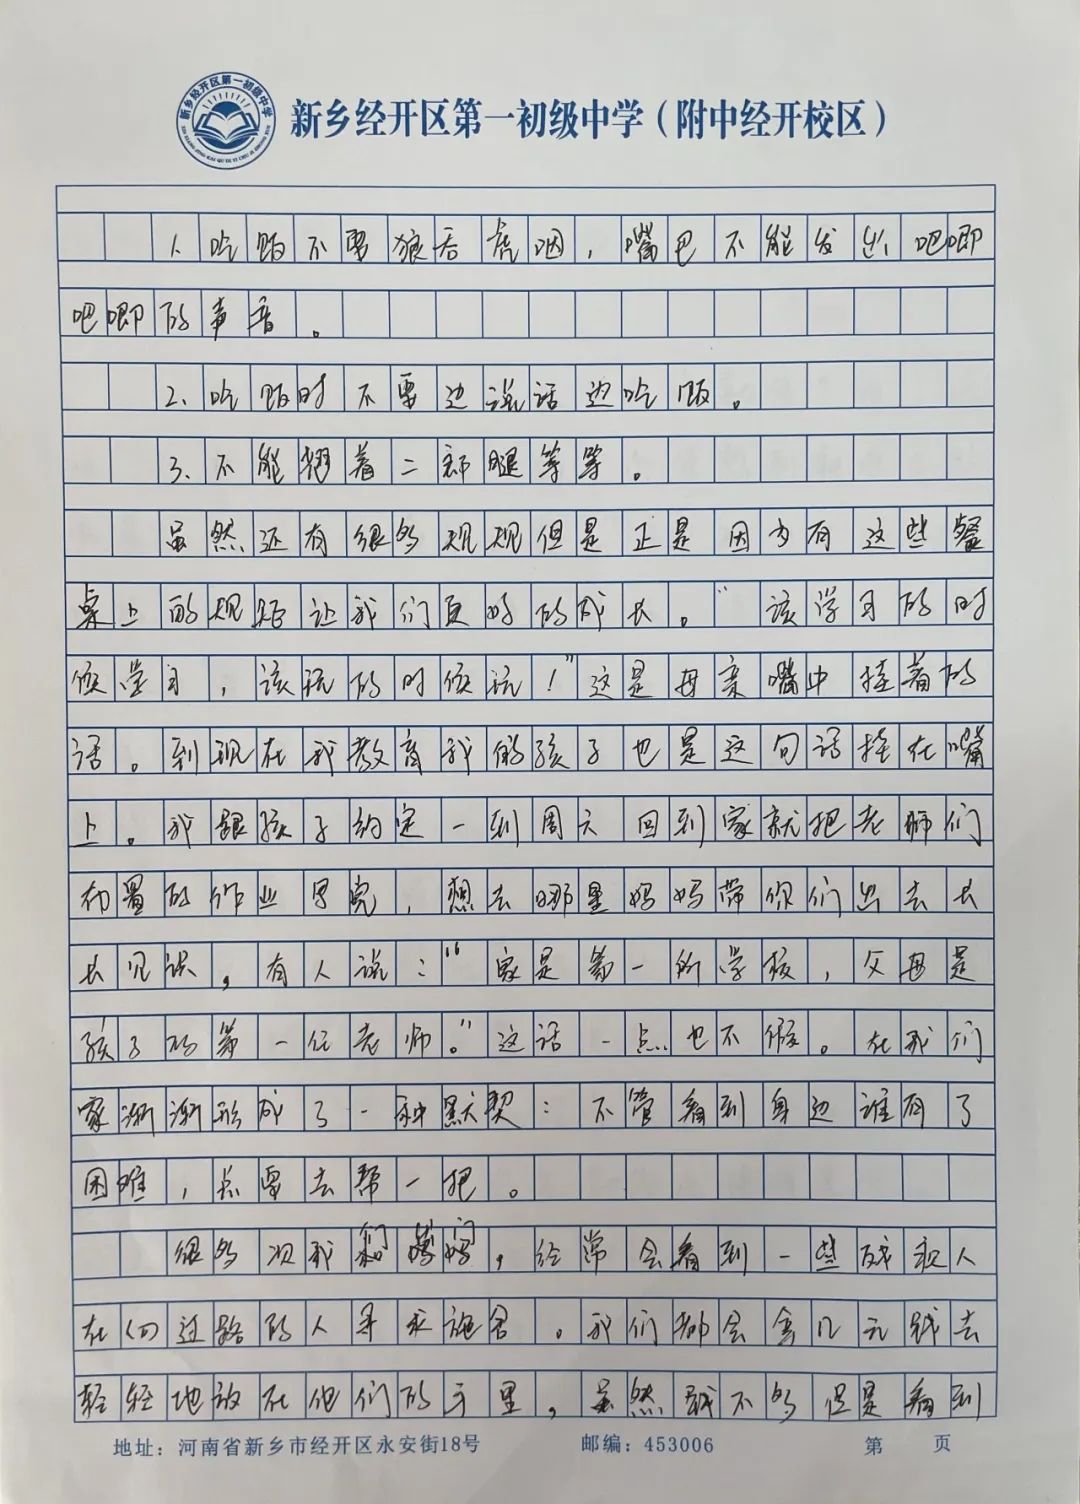 新乡经开区第一初级中学
新乡经开区第一初级中学（附中经开校区）
1、吃饭不要狼吞虎咽，嘴巴不能发出吧唧
吧唧的声音。
2、吃饭时不要边说话边吃饭。
3、不能翘着二郎腿等等。
虽然还有很多规规但是正是因为有这些餐
桌上的规矩让我们更好的成长。“该学习的时
候学习，该玩的时候玩！”这是母亲嘴中挂着的
话。到现在我教育我的孩子也是这句话挂在嘴
上。我跟孩子约定一到周六回到家就把老师们
布置的作业写完，想去哪里妈妈带你们出去长
长见识。有人说：“家是第一所学校，父母是
孩子的第一任老师。”这话一点也不假。在我们
家渐渐形成了一种默契：不管看到身边谁有了
困难，点要去帮一把。
很多次我们，经常会看到一些残疾人
在向过路的人寻求施舍。我们都会拿几元钱去
轻轻地放在他们的手里，虽然钱不多但是看到
地址：河南省新乡市经开区永安街18号 邮编：453006 第 页